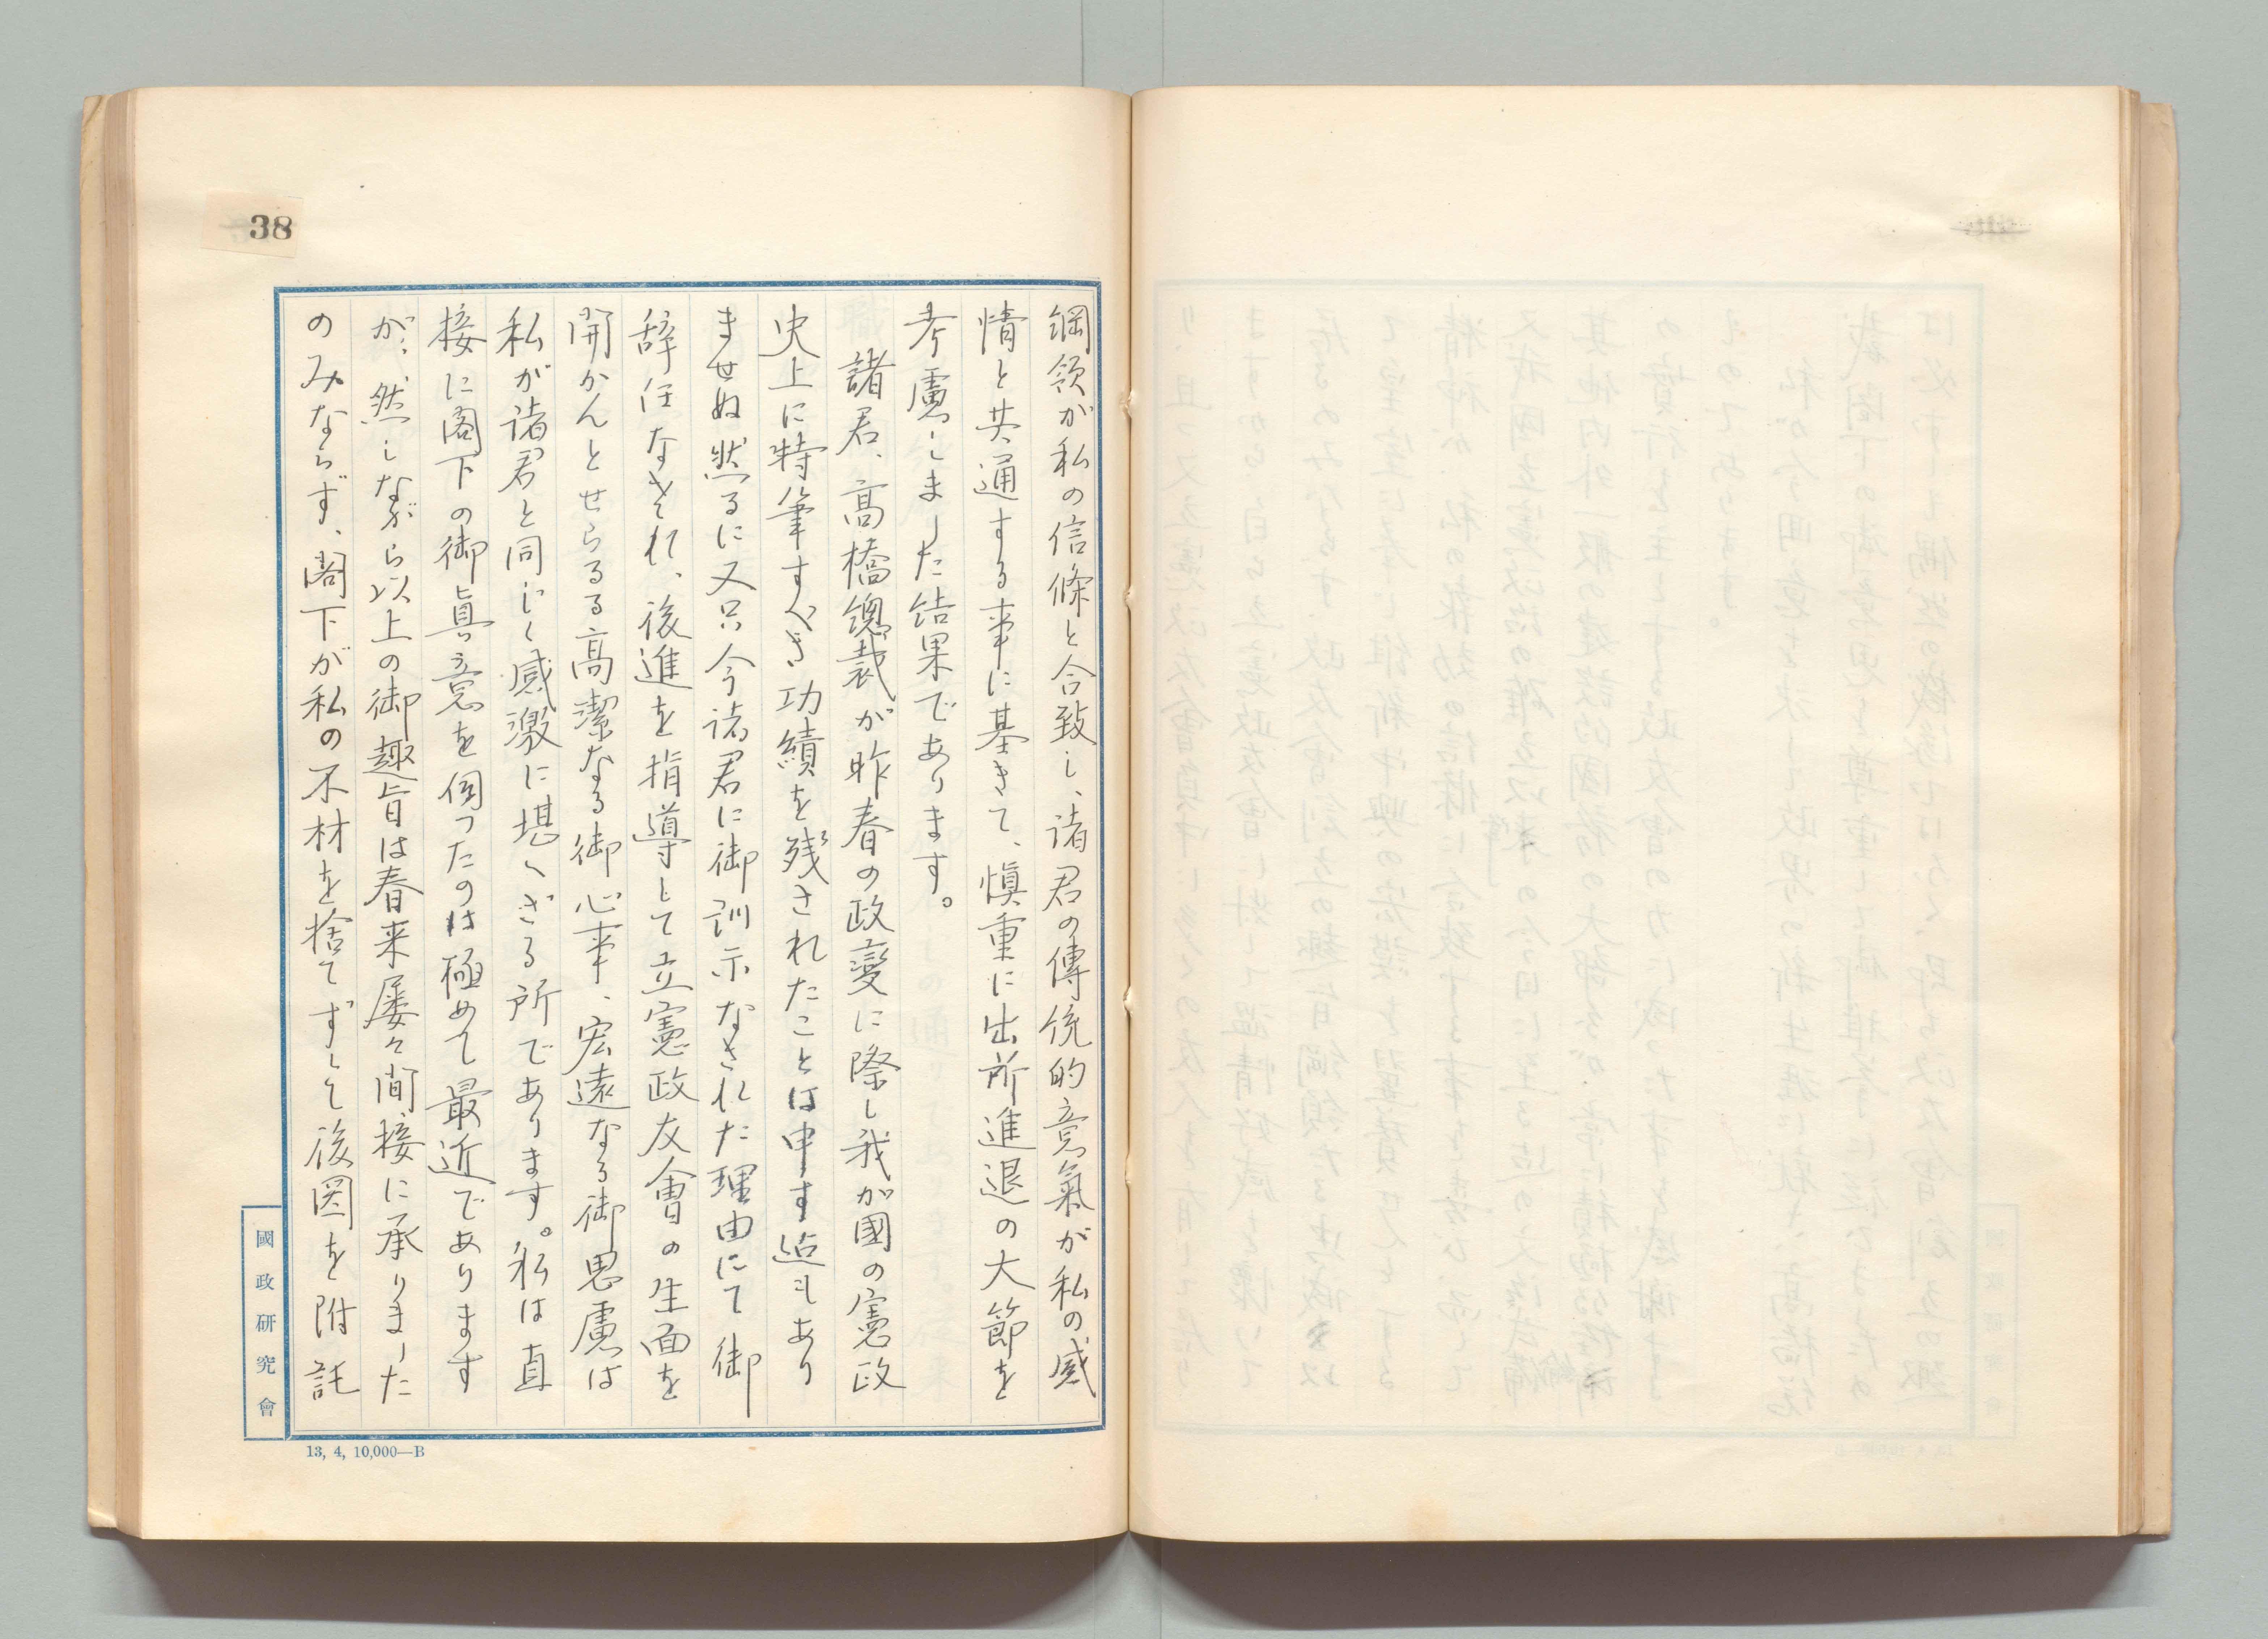 綱領が私の信條と合致し、諸君の傳統的意氣が私の感
情と共通する事に基きて、愼重に出所進退の大節を
考慮しました結果であります。
諸君、高橋總裁が昨春の政變に際し我が國の憲政
史上に特筆すべき功績を残されたことは申す迠もあり
ませぬ然るに又只今諸君に御訓示なされた理由にて御
辞任なされ、後進を指導して立憲政友會の生面を
開かんとせらるる高潔なる御心事、宏遠なる御思慮は
私が諸君と同じく感激に堪へざる所であります。私は直
接に閣下の御眞意を伺つたのは極めて最近であります
が、然しながら以上の御趣旨は春来屡々間接に承りました
のみならず、閣下が私の不材を捨てずして後図を附託
38
國政研究會
13, 4, 10,000—B